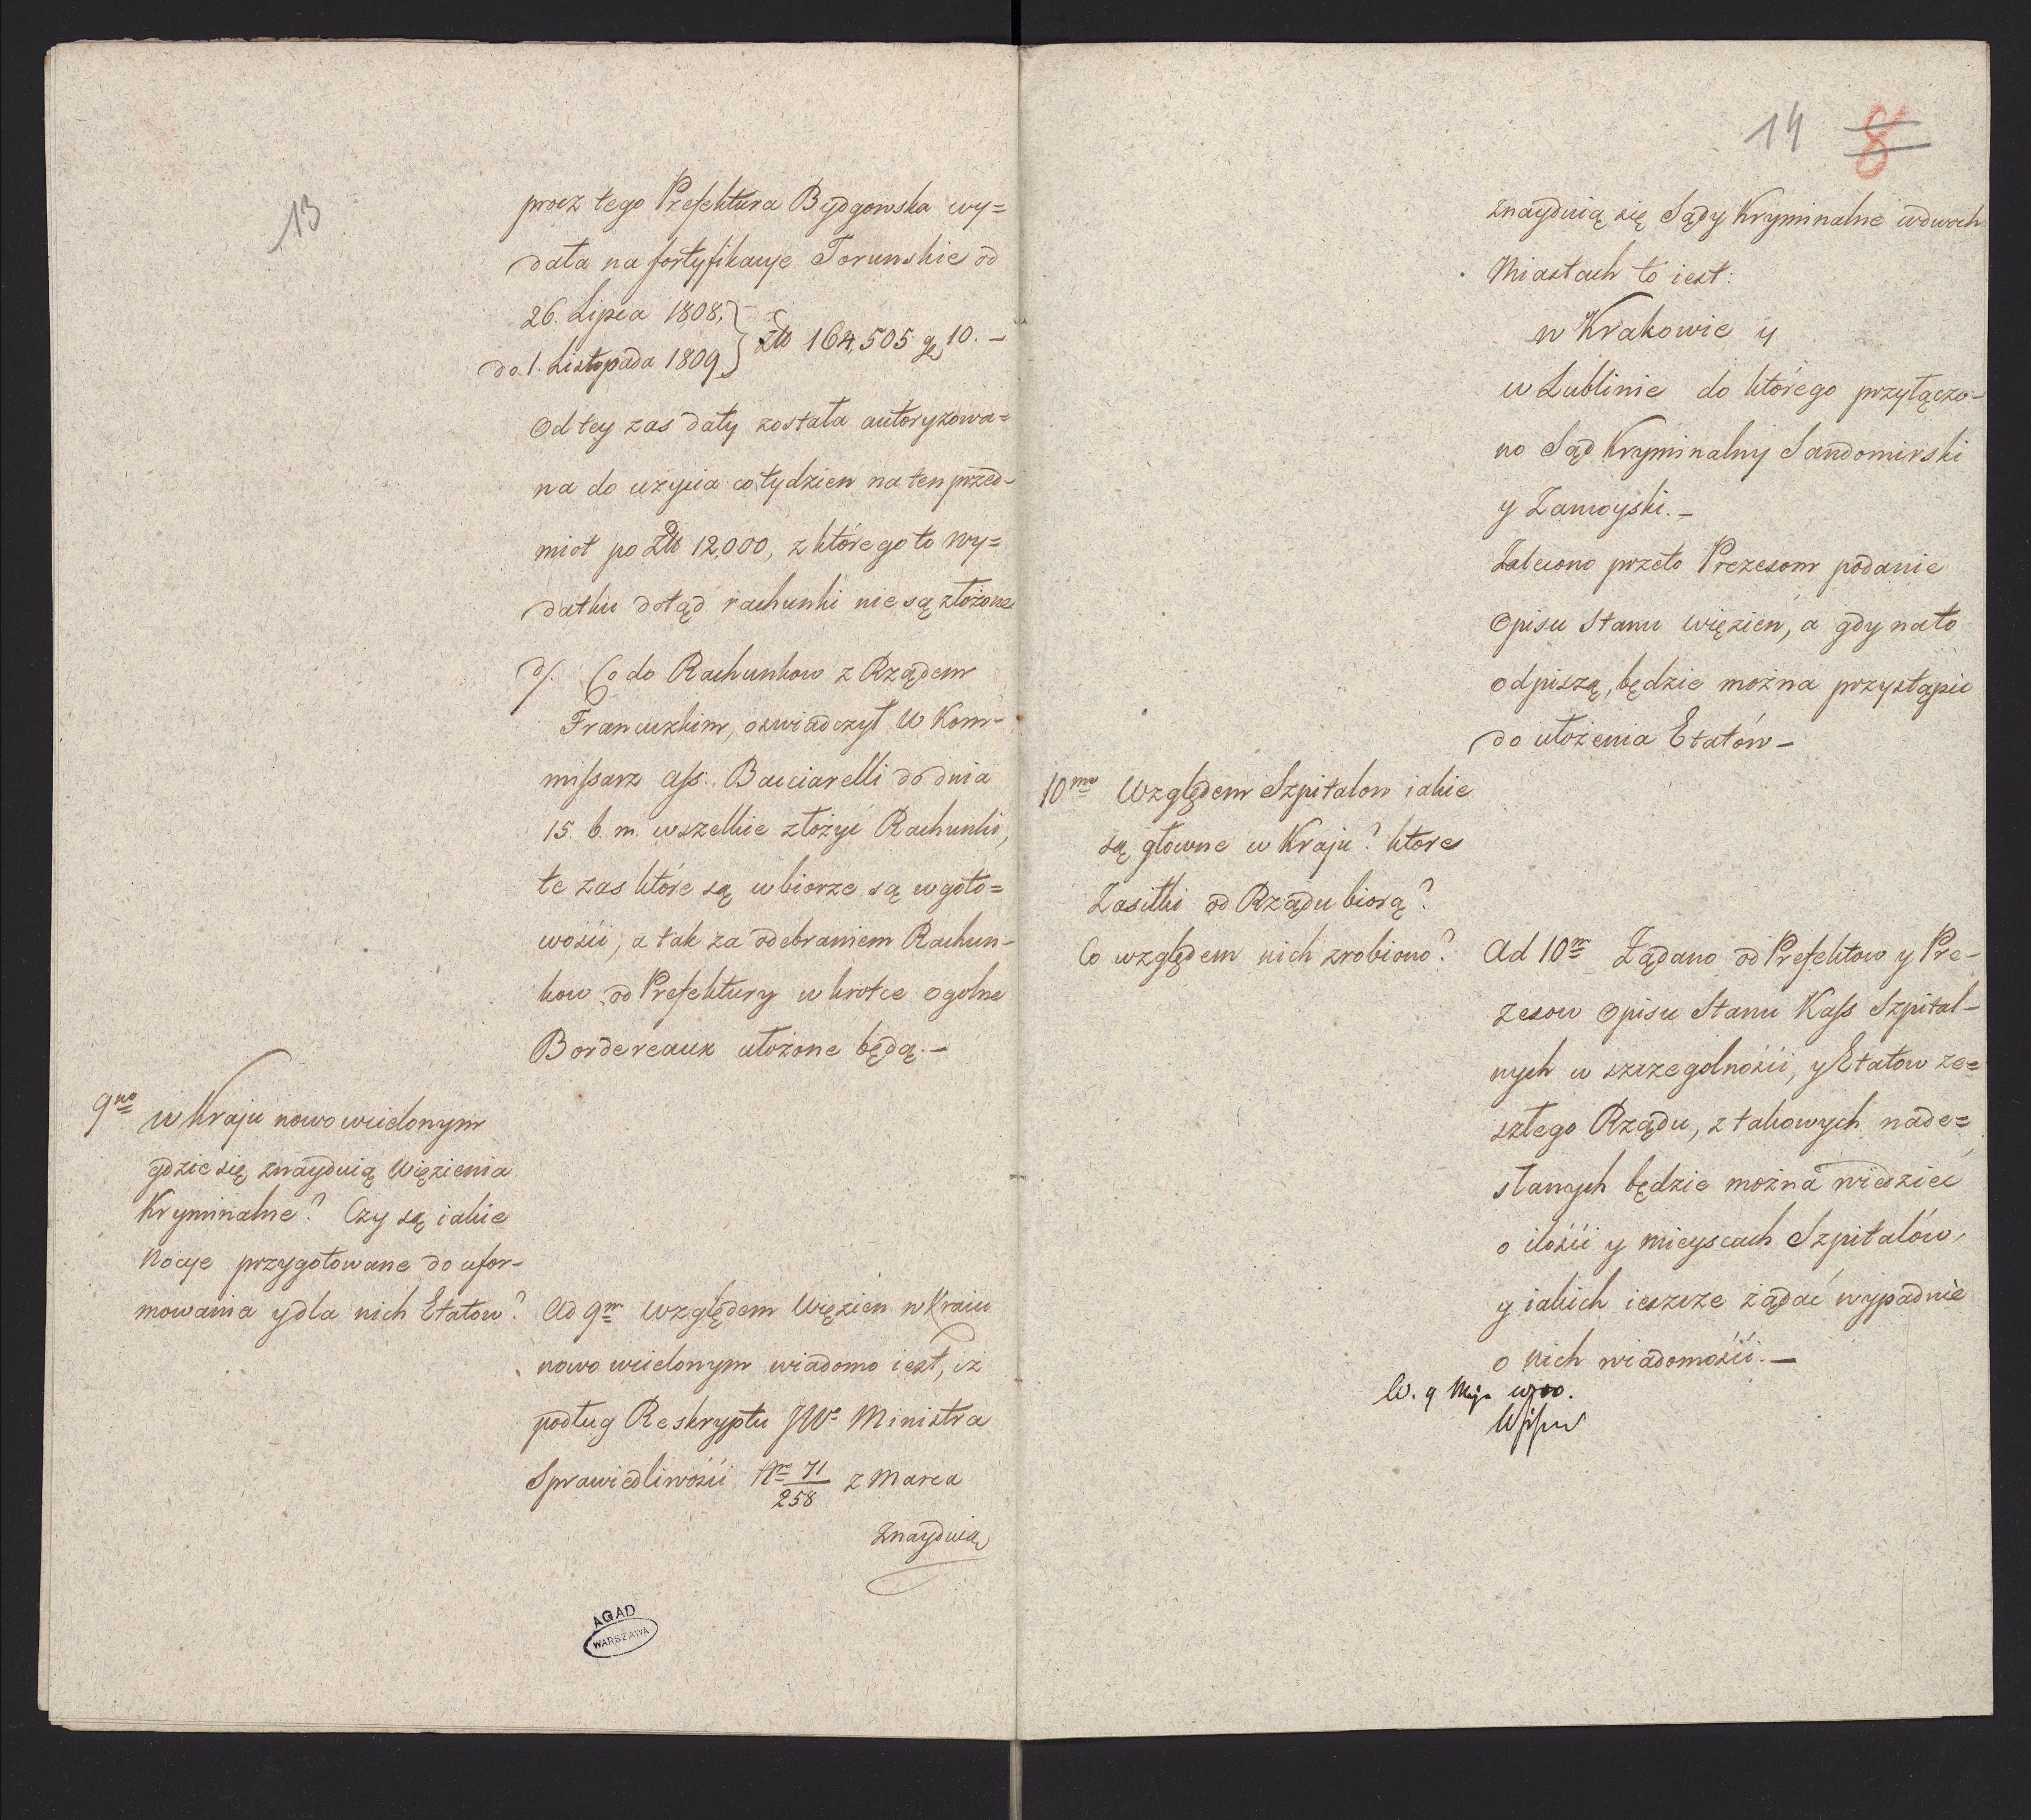 13
procz tego Prefektura Bydgowska wy=
dała na fortyfikacye Torunskie od
26. Lipca 1808,
do 1. Listopada 1809 } Złł 164,505 gr 10. —
Od tey zas daty została autoryzowa=
na do uzycia co tydzien na ten przed-
miot po Złł 12,000, z którego to wy=
datku dotąd rachunki nie są złożone
d/. Co do Rachunkow z Rządem
Francuzkim, oswiadczył W Kom-
missarz Ass: Bacciarelli do dnia
15. b. m. wszelkie złożyć Rachunki,
te zas które są w biorze są w goto=
wości, a tak za odebraniem Rachun-
kow od Prefektury w krotce ogolne
Bordereaux ułożone będą. —
9no w Kraju nowo wcielonym
gdzie się znayduią Więzienia
Kryminalne? Czy są iakie
Nocye przygotowane do ufor-
mowania y dla nich Etatow?
Ad 9m Względem Więzień w Kraiu
nowo wcielonym wiadomo iest, iż
podług Reskryptu JWo Ministra
Sprawiedliwości Nro 71/258 z Marca
Znayduią
AGAD
WARSZAWA
14 8
znayduią się Sądy Kryminalne w dwoch
Miastach to iest:
w Krakowie y
w Lublinie do którego przyłączo-
no Sąd Kryminalny Sandomirski
y Zamoyski. —
Zalecono przeto Prezesom podanie
Opisu Stanu więzien, a gdy na to
odpiszą, będzie można przystąpić
do ułożenia Etatów —
10mo Względem Szpitalow iakie
są główne w Kraju? które
Zasiłki od Rządu biorą?
Co względem nich zrobiono?
Ad 10m Żądano od Prefektow y Pre-
zesow Opisu Stanu Kass Szpital-
nych w szczegolności, y Etatow ze=
szłego Rządu, z takowych nade=
słanych będzie można wiedzieć
o ilości y mieyscach Szpitalów,
y iakich ieszcze żądać wypadnie
o nich wiadomości. —
W. 9 Maja